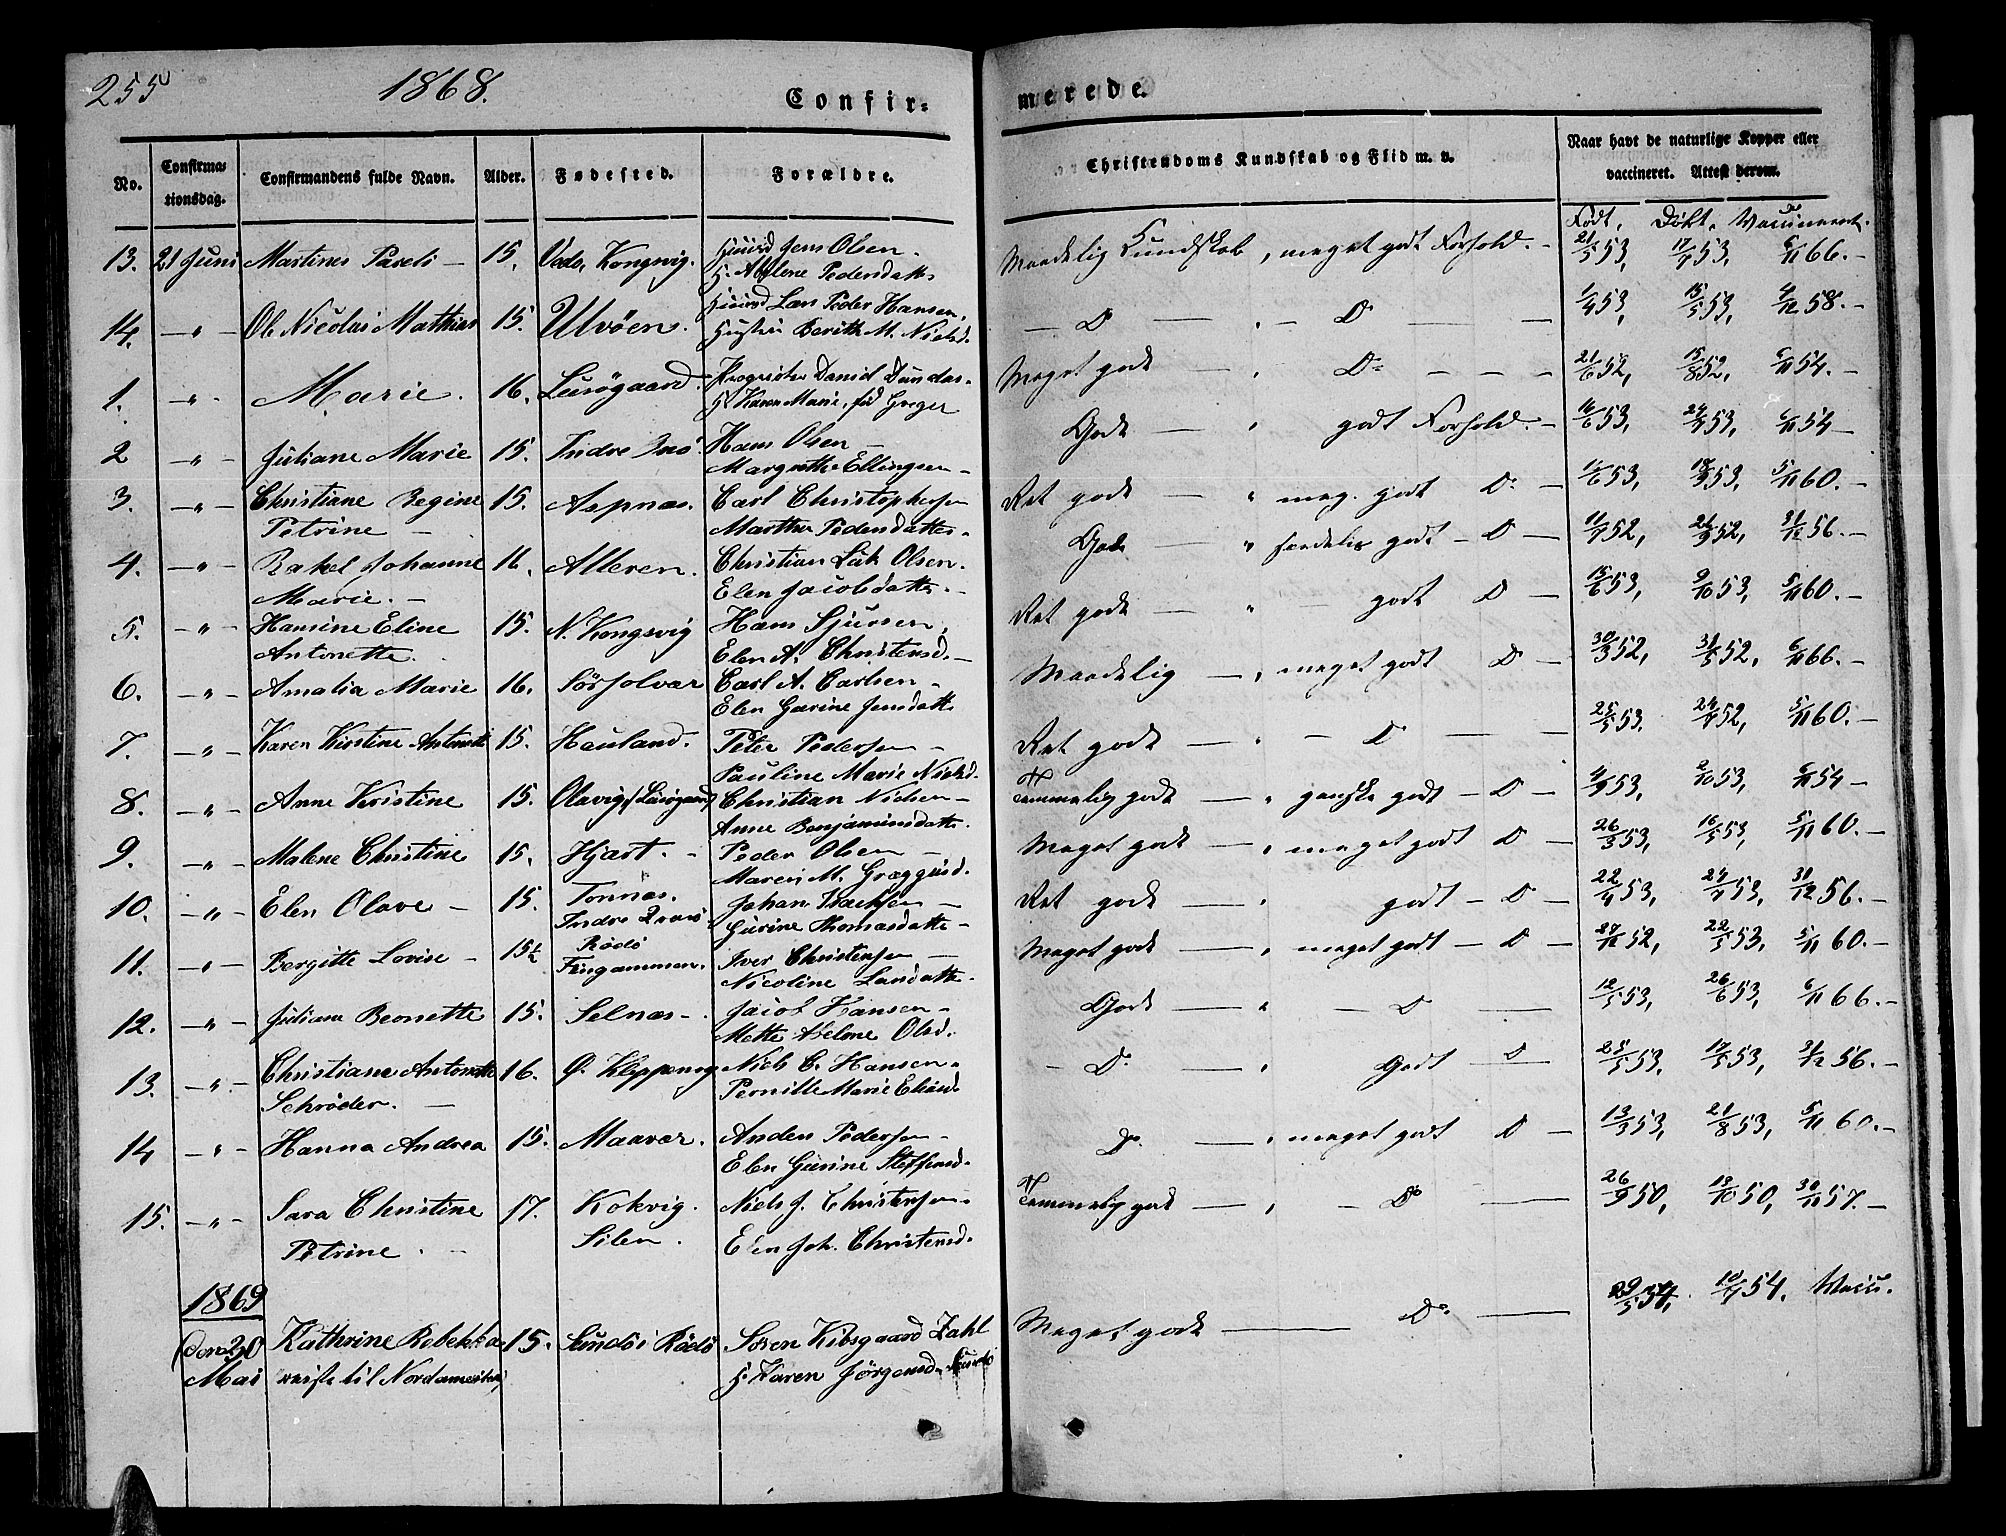 255 1868. Confir= merede.
No. Confirma= tionsdag. Confirmandens fulde Navn. Alder. Fødested. Forældre. Christendoms Kundskab og Flid m. v. Naar havt de naturlige Kopper eller vaccineret. Attest derom.
Født, Døbt, Vaccineret.
13. 21 Juni Martines Paseli — 15. Vedv, Kongsvig. Huusd Jens Olsen. Maadelig Kundskab, meget godt Forhold. — 21/5 53, 17/7 53, 6/11 66. —
H. Abelene Pedersdatt.
14. — " — Ole Nicolai Mathias 15. Ulvöen. Huusd Lars Peder Hansen, — D — " — D — 1/4 53, 15/5 53, 4/12 58. —
Hustru Berith M. Nielsd.
1. — " — Marie. 16. Lurögaard. Proprietær Daniel Dundas. Meget godt — " D° — — — 21/6 52, 15/8 52, 6/11 54. —
H. Karen Marie, fød Greger
2 — " — Juliane Marie 15. Indre Hans Olsen — Godt — " godt Forhold. — 16/6 53, 24/7 53, 6/11 54 —
Margrethe Ellingsen —
3. — " — Christiane Regine 15. Aspnæs. Carl Christophersen Ret godt — " meg. godt D° — 1/6 53, 53, 5/11 60. —
Petrine — Marthe Pedersdatter.
4. — " — Rakel Johanne 16. Alderen. Christian Olsen. Godt — " særdeles godt — D — 11/7 52, 26/9 52, 31/12 56. —
Marie. — Elen Jacobsdatter. —
5. — " — Hansine Eline 15. N. Kongsvig Hans Sjursen, Ret godt — " — godt D — 15/6 53, 9/10 53, 5/11 60. —
Antonette. Elen A. Christensd. —
6. — " — Amalia Marie 16. Sörsolvær Carl A. Carlsen — Maadelig — " meget godt D — 30/3 52, 31/5 52, 6/11 66. —
Elen Gurine Jensdatt.
7. — " — Karen Kirstine Antonette 15. Hauland. Peter Pedersen — Ret godt — " — D — 25/5 53. 24/7 52, 5/11 60. —
Pauline Marie Nielsd.
8. — " — Anne Kristine 15. Olavig (Lurögaard) Christian Nielsen — Temmelig godt — " ganske godt — D — 4/9 53, 2/10 53, 6/11 54 —
Anne Benjaminsdatt.
9. — " — Malene Christine 15. Hjart. — Peder Olsen — Meget godt — " meget godt D — 26/3 53, 16/5 53, 5/11 60. —
Maren M. Greggusd.
10. — " — Elen Olave — 15. Tonnæs. Johan Isachsen — Ret godt — " godt — D — 22/4 53, 24/7 53, 31/12 56. —
Indre Gurine Thomasdatt. —
11. — " — Bergitte Lovise — 15½ Rödö Iver Christensen — Meget godt — " meget godt — D — 27/12 52, 22/5 53, 5/11 60. —
Fingammen. Nicoline Larsdatte.
12. — " — Juliane Beonette 15. Selnæs — Jacob Hansen — Godt — " — D — 12/5 53, 26/6 53, 6/11 66. —
Mette Abelone Olsd.
13. — " — Christiane Antonette 16. Ø. Kleppeng Niels C. Hansen. — D° — " Godt D — 25/1 53, 17/5 53, 31/12 56. —
Schröder. — Pernille Marie Eliasd.
14 — " — Hanna Andrea 15. Maavær. Anders Pedersen — D° — " meget godt D — 13/3 53, 21/8 53, 5/11 60. —
Elen Gurine Steffensd.
15. — " — Sara Christine 17. Kokvig. Niels J. Christensen. Temmelig godt — " — D° — 26/9 50, 13/10 50, 30/11 57. —
Petrine. — Silen. Elen Joh. Christensd.
1869
den 20 Kathrine Rebekka 15. Sundöi Rödö Sören Kibsgaard Zahl Meget godt — D° — 29/5 54, 10/7 54. Vacc.
Mai reiste til Nordamerika H. Karen Jörgensd.